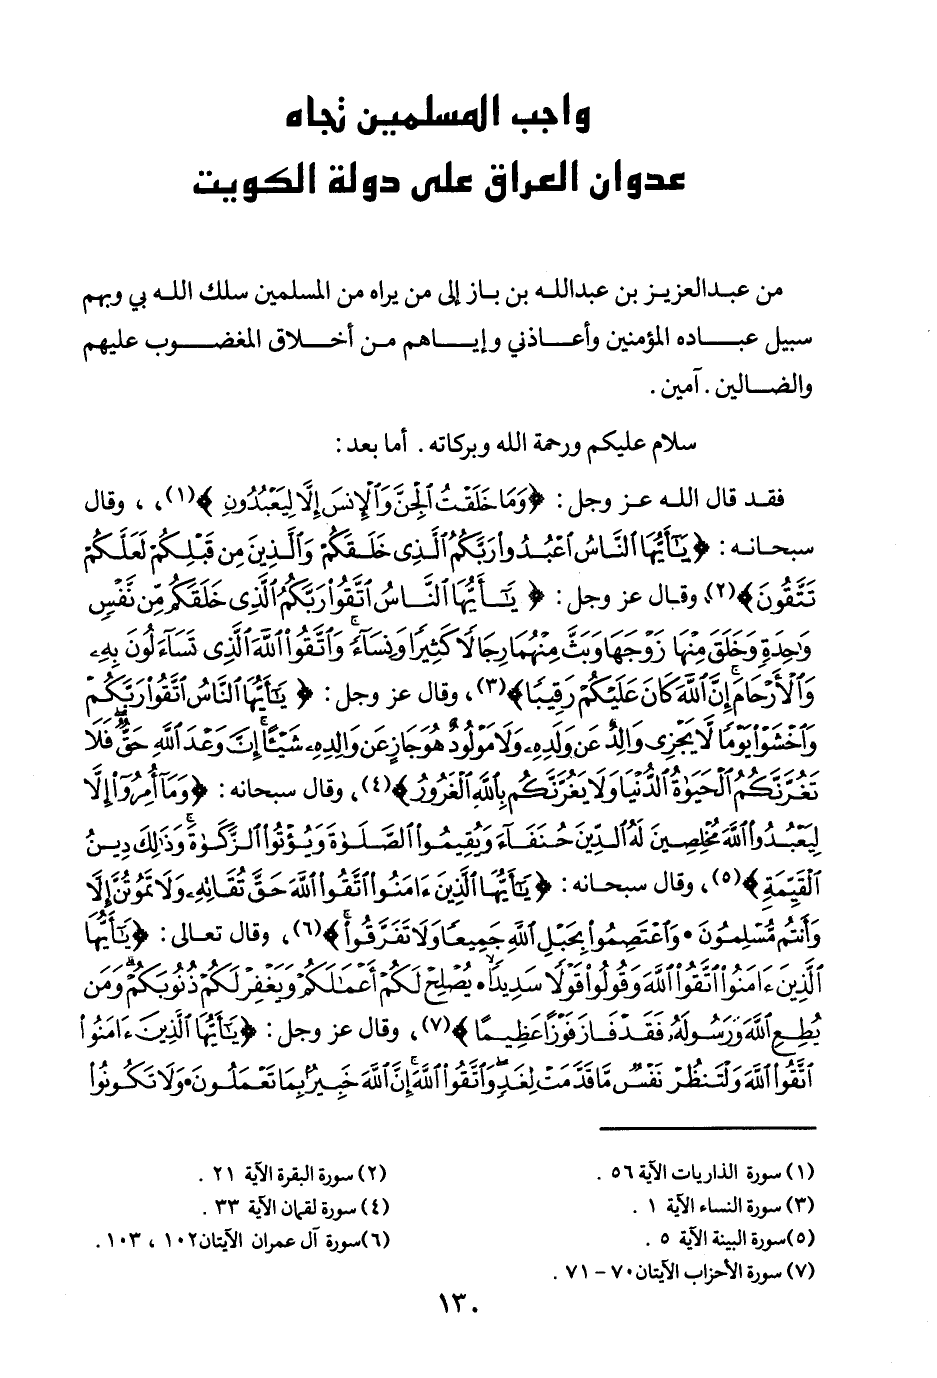 واجب المسلمين تجاه
عدوان العراق على دولة الكويت
من عبدالعزيز بن عبدالله بن باز إلى من يراه من المسلمين سلك الله بي وبهم
سبيل عباده المؤمنين وأعاذني وإياهم من أخلاق المغضوب عليهم
والضالين . آمين .
سلام عليكم ورحمة الله وبركاته . أما بعد :
فقد قال الله عز وجل : ﴿وَمَا خَلَقْتُ ٱلْجِنَّ وَٱلْإِنسَ إِلَّا لِيَعْبُدُونِ﴾(١)، ، وقال
سبحانه : ﴿يَٰٓأَيُّهَا ٱلنَّاسُ ٱعْبُدُوا۟ رَبَّكُمُ ٱلَّذِى خَلَقَكُمْ وَٱلَّذِينَ مِن قَبْلِكُمْ لَعَلَّكُمْ
تَتَّقُونَ﴾(٢)، وقال عز وجل : ﴿يَٰٓأَيُّهَا ٱلنَّاسُ ٱتَّقُوا۟ رَبَّكُمُ ٱلَّذِى خَلَقَكُم مِّن نَّفْسٍ
وَٰحِدَةٍ وَخَلَقَ مِنْهَا زَوْجَهَا وَبَثَّ مِنْهُمَا رِجَالًا كَثِيرًا وَنِسَآءً ۚ وَٱتَّقُوا۟ ٱللَّهَ ٱلَّذِى تَسَآءَلُونَ بِهِۦ
وَٱلْأَرْحَامَ ۚ إِنَّ ٱللَّهَ كَانَ عَلَيْكُمْ رَقِيبًا﴾(٣)، وقال عز وجل : ﴿يَٰٓأَيُّهَا ٱلنَّاسُ ٱتَّقُوا۟ رَبَّكُمْ
وَٱخْشَوْا۟ يَوْمًا لَّا يَجْزِى وَالِدٌ عَن وَلَدِهِۦ وَلَا مَوْلُودٌ هُوَ جَازٍ عَن وَالِدِهِۦ شَيْـًٔا ۚ إِنَّ وَعْدَ ٱللَّهِ حَقٌّ ۖ فَلَا
تَغُرَّنَّكُمُ ٱلْحَيَوٰةُ ٱلدُّنْيَا وَلَا يَغُرَّنَّكُم بِٱللَّهِ ٱلْغَرُورُ﴾(٤)، وقال سبحانه : ﴿وَمَآ أُمِرُوٓا۟ إِلَّا
لِيَعْبُدُوا۟ ٱللَّهَ مُخْلِصِينَ لَهُ ٱلدِّينَ حُنَفَآءَ وَيُقِيمُوا۟ ٱلصَّلَوٰةَ وَيُؤْتُوا۟ ٱلزَّكَوٰةَ ۚ وَذَٰلِكَ دِينُ
ٱلْقَيِّمَةِ﴾(٥)، وقال سبحانه : ﴿يَٰٓأَيُّهَا ٱلَّذِينَ ءَامَنُوا۟ ٱتَّقُوا۟ ٱللَّهَ حَقَّ تُقَاتِهِۦ وَلَا تَمُوتُنَّ إِلَّا
وَأَنتُم مُّسْلِمُونَ • وَٱعْتَصِمُوا۟ بِحَبْلِ ٱللَّهِ جَمِيعًا وَلَا تَفَرَّقُوا۟ ۚ﴾(٦)، وقال تعالى : ﴿يَٰٓأَيُّهَا
ٱلَّذِينَ ءَامَنُوا۟ ٱتَّقُوا۟ ٱللَّهَ وَقُولُوا۟ قَوْلًا سَدِيدًا • يُصْلِحْ لَكُمْ أَعْمَٰلَكُمْ وَيَغْفِرْ لَكُمْ ذُنُوبَكُمْ ۗ وَمَن
يُطِعِ ٱللَّهَ وَرَسُولَهُۥ فَقَدْ فَازَ فَوْزًا عَظِيمًا﴾(٧)، وقال عز وجل : ﴿يَٰٓأَيُّهَا ٱلَّذِينَ ءَامَنُوا۟
ٱتَّقُوا۟ ٱللَّهَ وَلْتَنظُرْ نَفْسٌ مَّا قَدَّمَتْ لِغَدٍ ۖ وَٱتَّقُوا۟ ٱللَّهَ ۚ إِنَّ ٱللَّهَ خَبِيرٌۢ بِمَا تَعْمَلُونَ • وَلَا تَكُونُوا۟
(١) سورة الذاريات الآية ٥٦ .
(٢) سورة البقرة الآية ٢١ .
(٣) سورة النساء الآية ١ .
(٤) سورة لقمان الآية ٣٣ .
(٥) سورة البينة الآية ٥ .
(٦) سورة آل عمران الآيتان ١٠٢ ، ١٠٣ .
(٧) سورة الأحزاب الآيتان ٧٠ - ٧١ .
١٣٠